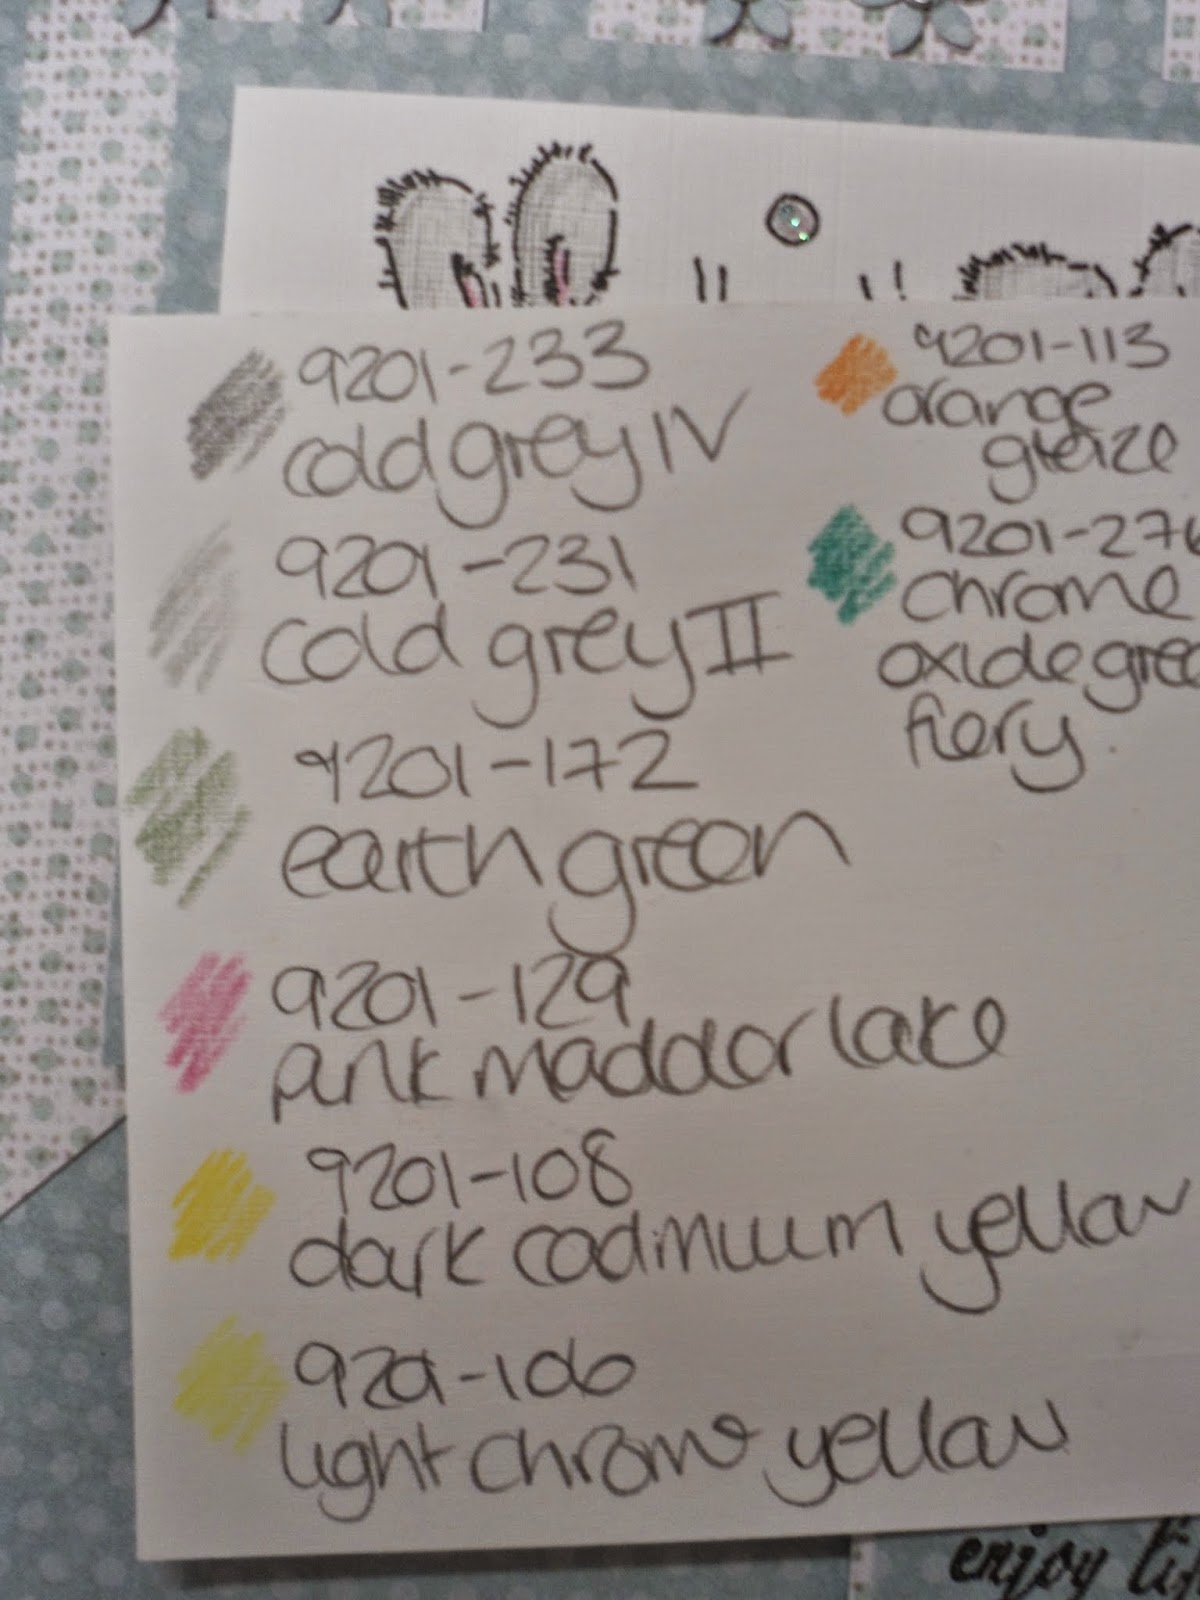 9201-233
cold grey IV
9201-231
cold grey II
9201-172
earth green
9201-129
pink madder lake
9201-108
dark cadmium yellow
9201-106
light chrome yellow
9201-113
orange
glaze
9201-276
chrome
oxide gree
fiery.
enjoy